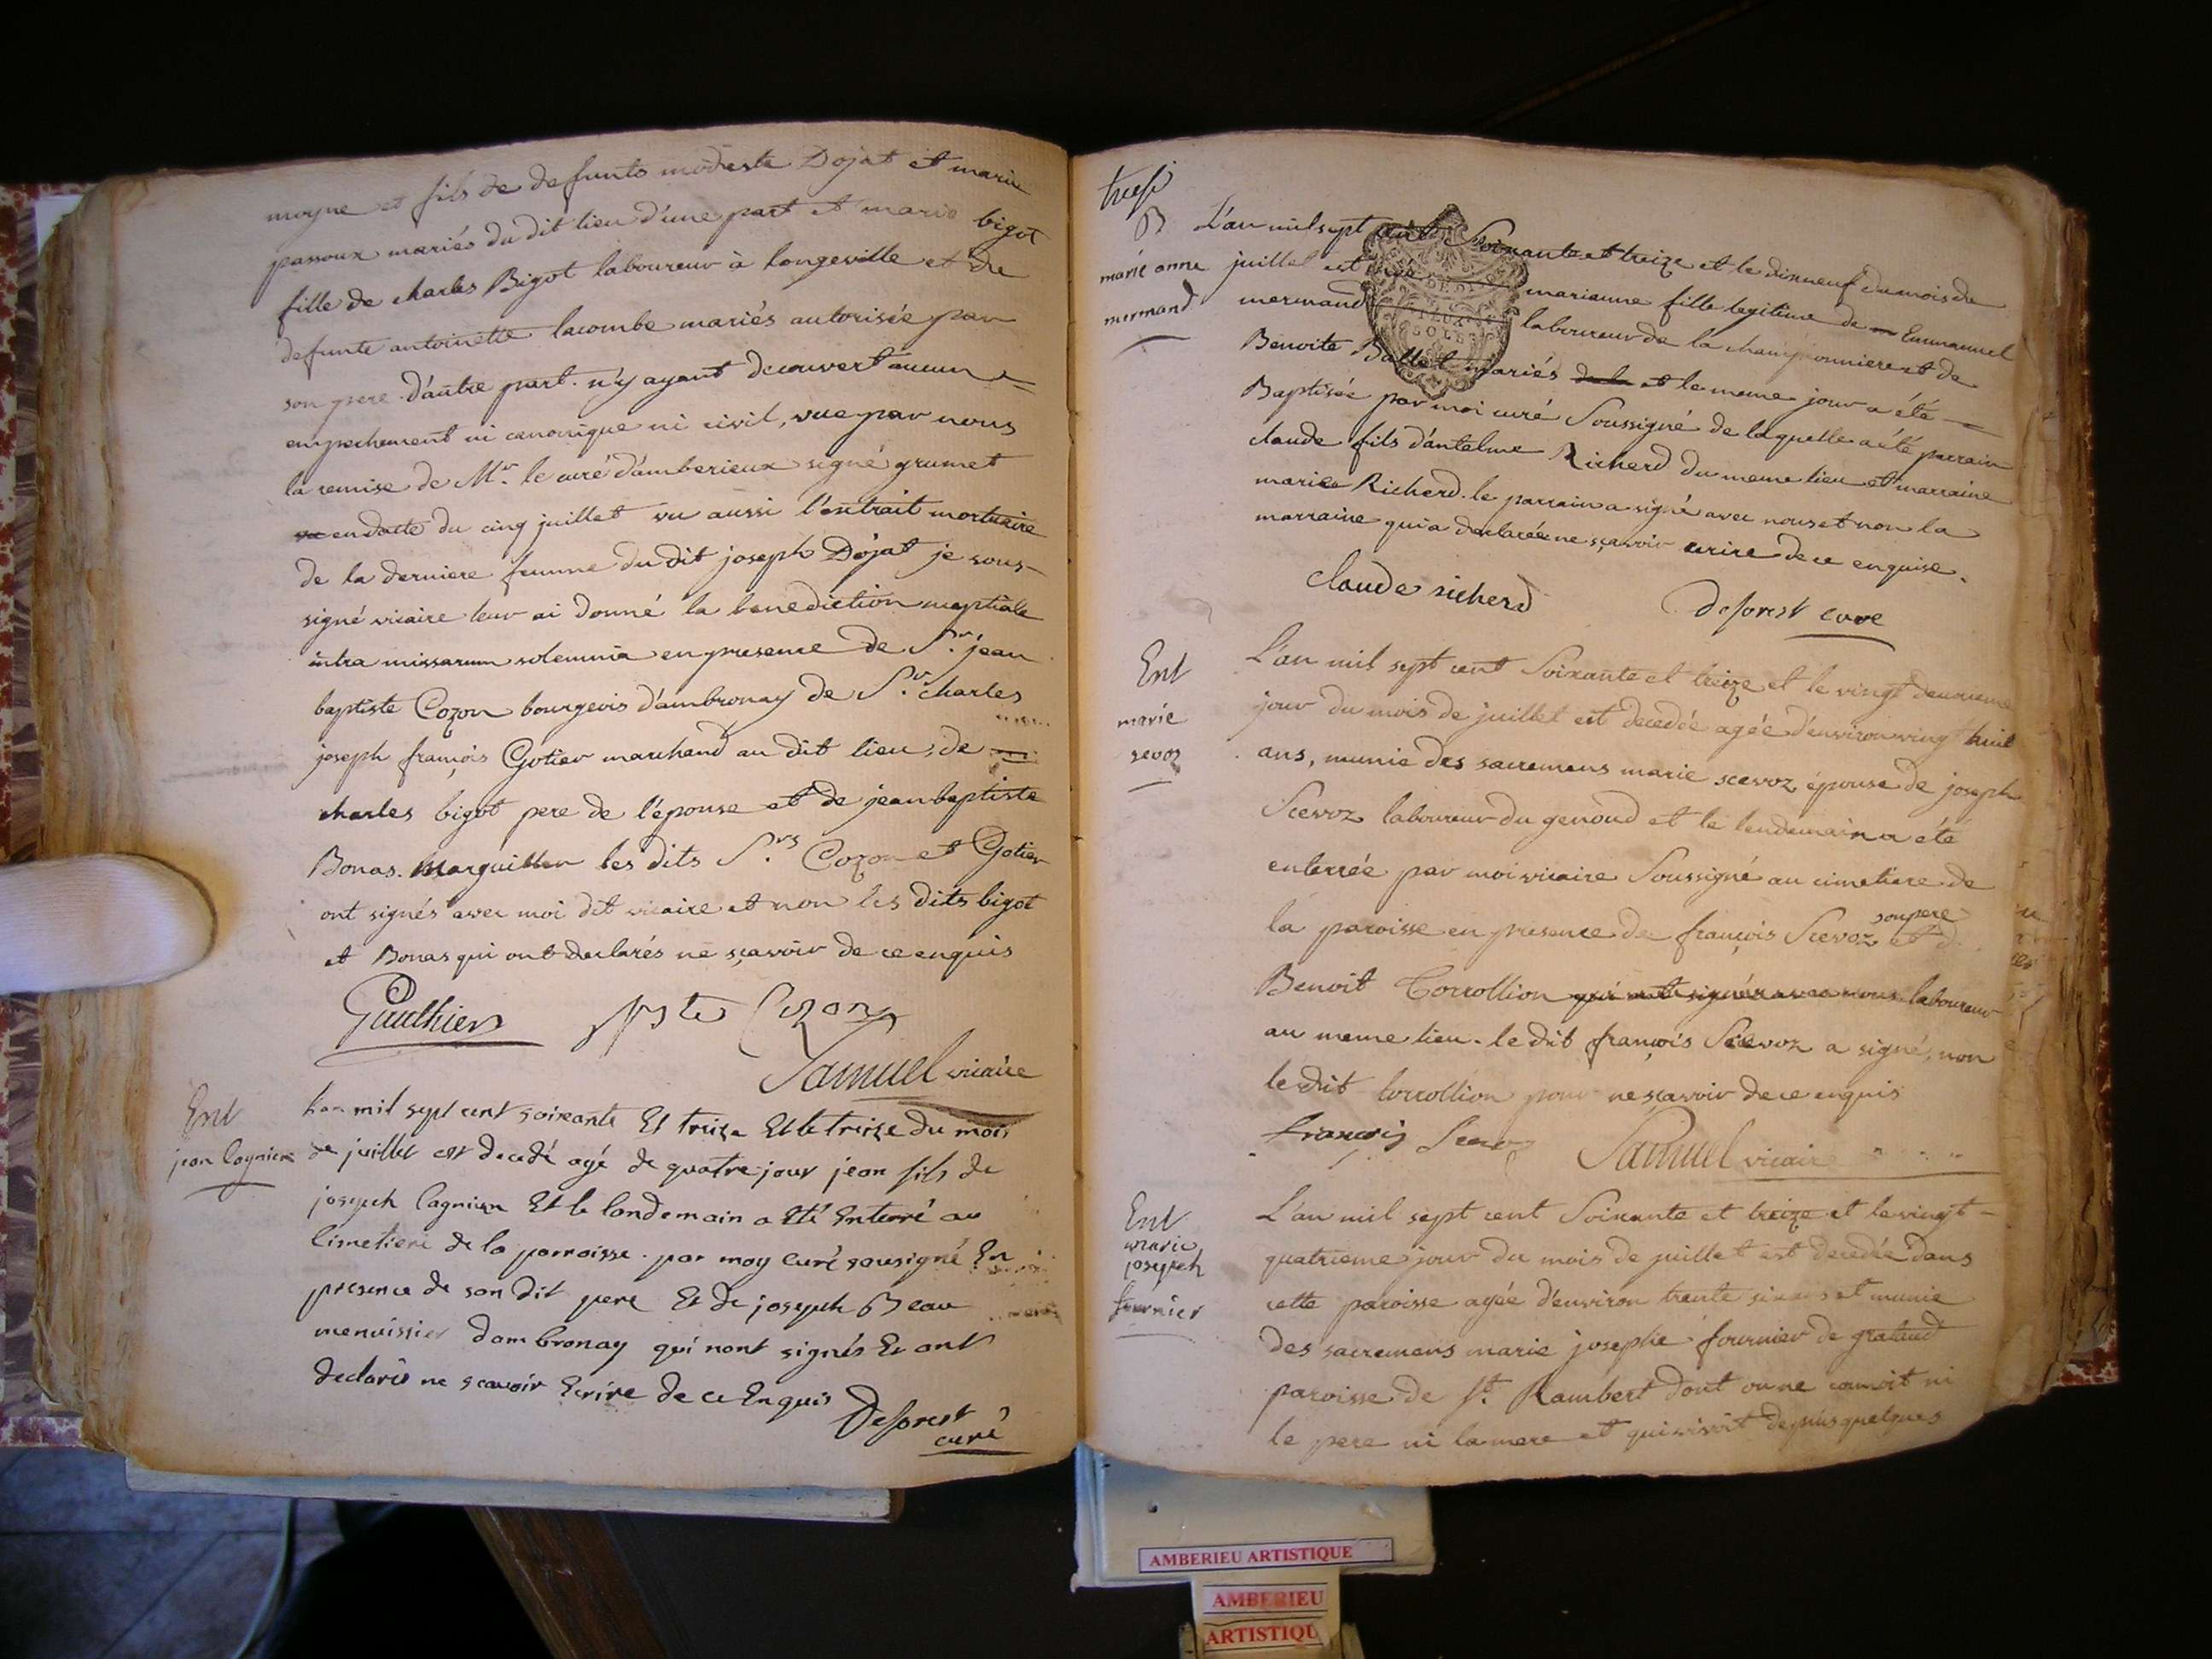 moyne et fils de defunts modeste Dojat et marie
passoux mariés du dit lieu d'une part et marie bigot
fille de charles Bigot laboureur à longeville et de
defunte antoinette lacombe mariés autorisée par
son pere d'autre part. n'y ayant decouvert aucun
empechement ni canonique ni civil, vue par nous
la remise de Mr. le curé d'amberieux signé grumet
en datte du cinq juillet vu aussi l'extrait mortuaire
de la derniere femme du dit joseph Dojat je sous-
signé vicaire leur ai donné la benediction nuptiale
intra missarum solemnia en presence de Sr. jean
baptiste Cozon bourgeois d'ambronay de Sr. charles
joseph françois Gotier marchand au dit lieu, de
charles bigot pere de l'épouse et de jean baptiste
Bonas. Marguillier les dits Srs. Cozon et Gotier
ont signés avec moi dit vicaire et non les dits bigot
et Bonas qui ont declarés ne sçavoir de ce enquis
Gaulthier Cozon
Samuel vicaire
Ent
jean lagnier
Lan mil sept cent soixante Et treize Et le treize du mois
de juillet est decedé agé de quatre jour jean fils de
joseph lagnier Et le landemain a Eté Enterré au
Cimetiere de la parroisse. par moy curé sousigné En
presence de son dit pere Et de joseph Beau
menuissier dambronay qui nont signés Et ont
declarés ne scavoir Ecrire de ce Enquis
Deforest
curé
B
marie anne
mermand
L'an mil sept cent Soixante et treize et le dixneuf du mois de
juillet est marianne fille legitime de Emmanuel
mermand laboureur de la championniere et de
Benoite Ballet mariés de la et le meme jour a été
Baptisée par moi curé Soussigné de laquelle a été parrain
claude fils d'antelme Richerd du meme lieu et marraine
mariée Richerd. le parrain a signé avec nous et non la
marraine qui a declarée ne sçavoir ecrire de ce enquise.
Claude richerd deforest curé
Ent
marie
sevoz
L'an mil sept cent Soixante et treize et le vingt deuxieme
jour du mois de juillet est decedée agée d'environ vingt huit
ans, munie des sacremens marie scevoz épouse de joseph
Scevoz laboureur du genoud et le lendemain a été
enterrée par moi vicaire Soussigné au cimetiere de
la paroisse en presence de françois Scevoz son pere et d.
Benoit Corrollion qui ont signés avec nous laboureur
au meme lieu. le dit françois Scevoz a signé, non
le dit Corrollion pour ne sçavoir de ce enquis
françois Samuel vicaire
Ent
marie
joseph
fournier
L'an mil sept cent Soixante et treize et le vingt-
quatrieme jour du mois de juillet est decedée dans
cette paroisse agée d'environ trente six ans et munie
des sacremens marie josephe fournier de gratoud
paroisse de St. Rambert dont on ne connoit ni
le pere ni la mere et qui vivoit depuis quelques
AMBERIEU ARTISTIQUE
AMBERIEU
ARTISTIQU